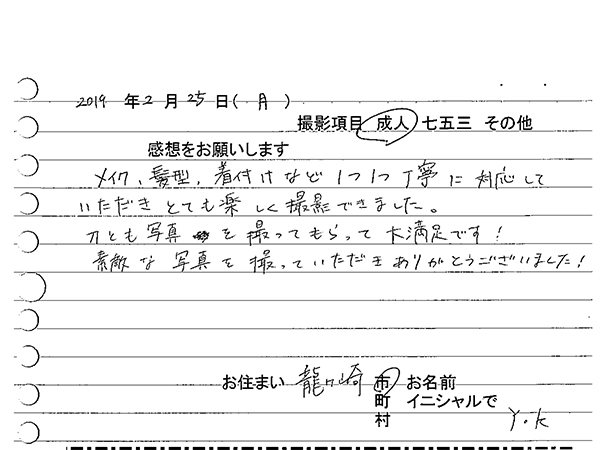 2019 年 2 月 25 日 ( 月 )
撮影項目 成人 七五三 その他
感想をお願いします
メイク、髪型、着付けなど1つ1つ丁寧に対応して
いただきとても楽しく撮影できました。
刀とも写真を撮ってもらって大満足です!
素敵な写真を撮っていただきありがとうございました!
お住まい 龍ヶ崎 市 お名前
町 イニシャルで
村 Y.K